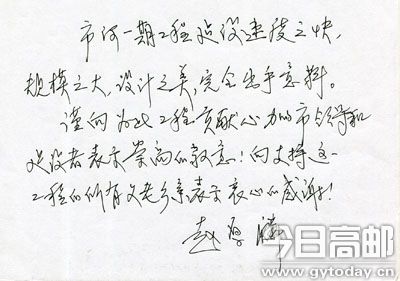 市河一期工程建设速度之快，
规模之大，设计之美，完全出乎意料。
谨向为此工程贡献心力的市领导和
建设者表示崇高的敬意！向支持这一
工程的所有父老乡亲表示衷心的感谢！
赵厚麟
今日高邮
www.gytoday.cn